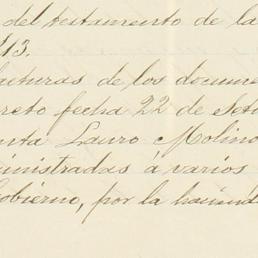 del testamento de la
13.
acturas de los docume
reto fecha 22 de Seti
nta Lauro Molino
inistradas á varios
obierno, por la haciend